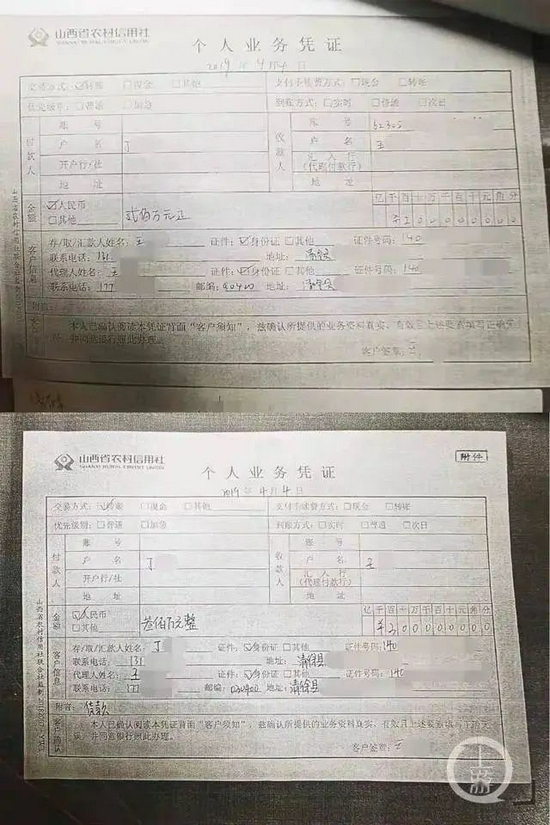 山西省农村信用社
SHANXI RURAL CREDIT UNION
个人业务凭证
2019年4月4日
交易方式：☑转账 □现金 □其他 支付手续费方式：□现金 □转账
优先级别：□普通 □加急 到账方式：□实时 □普通 □次日
付款人 账号 收款人 账号 52305
户名 丁 户名 王
开户行/社 汇入行(代理付款行)
地址 地址
金额 ☑人民币 □其他 贰佰万元正 亿千百十万千百十元角分
客户信息 存/取/汇款人姓名：王 证件：☑身份证 □其他 证件号码：140
联系电话：131 地址：清徐县
代理人姓名：王 证件：☑身份证 □其他 证件号码：140
联系电话：177 邮编：030400 地址：清徐县
附言：
本人已确认阅读本凭证背面"客户须知"，兹确认所提供的业务资料真实、有效且上述要素填写正确无
误，并同意银行据此办理。
客户签章：王
山西省农村信用社
SHANXI RURAL CREDIT UNION
附件
个人业务凭证
2019年4月4日
交易方式：☑转账 □现金 □其他 支付手续费方式：□现金 □转账
优先级别：□普通 □加急 到账方式：□实时 □普通 □次日
付款人 账号 收款人 账号
户名 丁 户名 王
开户行/社 汇入行(代理付款行)
地址 地址
金额 ☑人民币 □其他 叁佰万元整 亿千百十万千百十元角分
¥300000000
客户信息 存/取/汇款人姓名：丁 证件：☑身份证 □其他 证件号码：140
联系电话：131 地址：清徐县
代理人姓名：王 证件：☑身份证 □其他 证件号码：140
联系电话：177 邮编：030400 地址：清徐县
附言：货款
客户确认 本人已确认阅读本凭证背面"客户须知"，兹确认所提供的业务资料真实、有效且上述要素填写正确无
误，并同意银行据此办理。
客户签章：王
上游